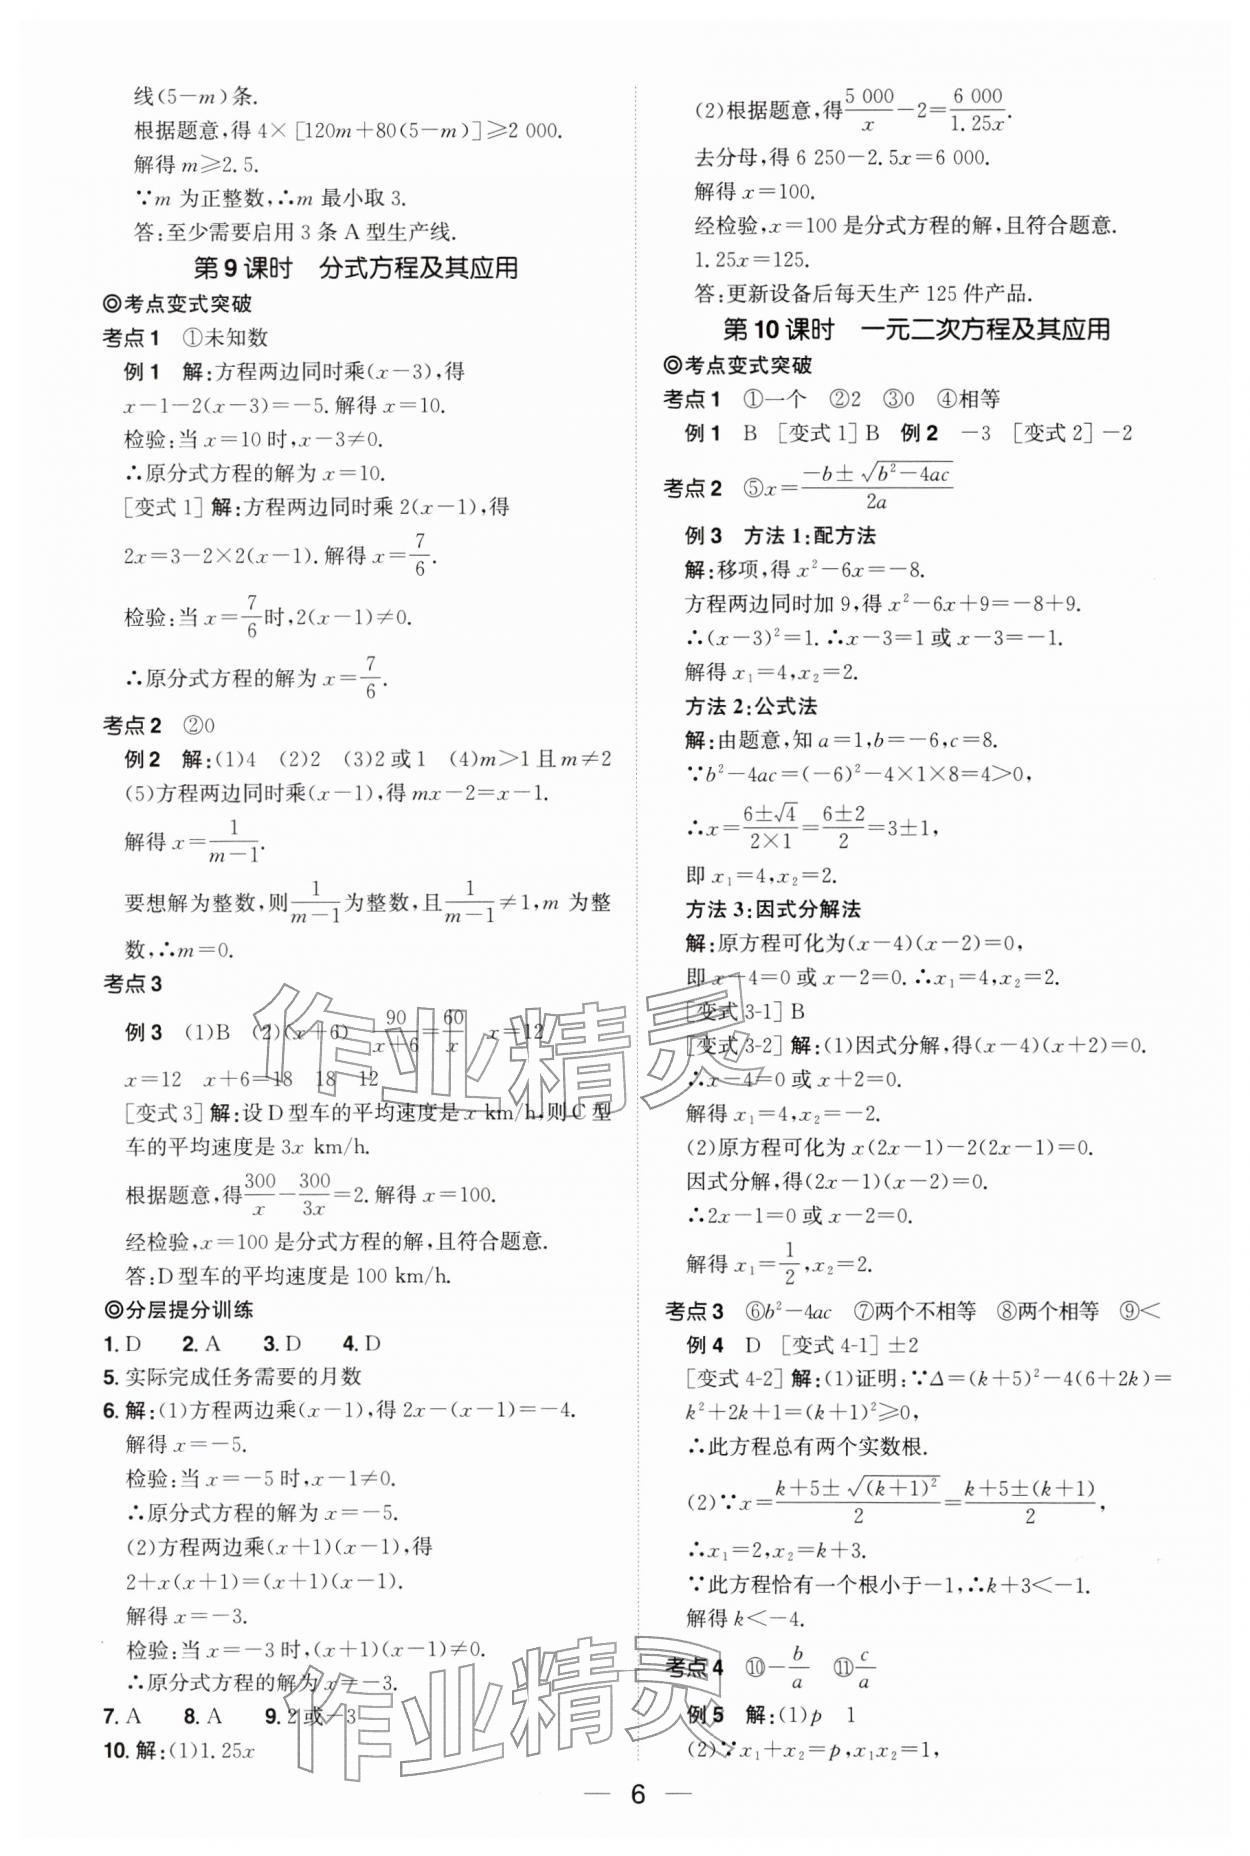 线(5-m)条.
根据题意,得 4×[120m+80(5-m)]≥2 000.
解得 m≥2.5.
∵m 为正整数,∴m 最小取 3.
答:至少需要启用 3 条 A 型生产线.
第 9 课时 分式方程及其应用
◎考点变式突破
考点 1 ①未知数
例 1 解:方程两边同时乘(x-3),得
x-1-2(x-3)=-5.解得 x=10.
检验:当 x=10 时,x-3≠0.
∴原分式方程的解为 x=10.
[变式 1] 解:方程两边同时乘 2(x-1),得
2x=3-2×2(x-1).解得 x=7/6.
检验:当 x=7/6时,2(x-1)≠0.
∴原分式方程的解为 x=7/6.
考点 2 ②0
例 2 解:(1)4 (2)2 (3)2 或 1 (4)m>1 且 m≠2
(5)方程两边同时乘(x-1),得 mx-2=x-1.
解得 x=1/(m-1).
要想解为整数,则1/(m-1)为整数,且1/(m-1)≠1,m 为整
数,∴m=0.
考点 3
例 3 (1)B (2)(x+6) 90/(x+6)=60/x x=12
x=12 x+6=18 18 12
[变式 3] 解:设 D 型车的平均速度是 x km/h,则 C 型
车的平均速度是 3x km/h.
根据题意,得300/x-300/3x=2.解得 x=100.
经检验,x=100 是分式方程的解,且符合题意.
答:D 型车的平均速度是 100 km/h.
◎分层提分训练
1. D 2. A 3. D 4. D
5. 实际完成任务需要的月数
6. 解:(1)方程两边乘(x-1),得 2x-(x-1)=-4.
解得 x=-5.
检验:当 x=-5 时,x-1≠0.
∴原分式方程的解为 x=-5.
(2)方程两边乘(x+1)(x-1),得
2+x(x+1)=(x+1)(x-1).
解得 x=-3.
检验:当 x=-3 时,(x+1)(x-1)≠0.
∴原分式方程的解为 x=-3.
7. A 8. A 9. 2 或-3
10. 解:(1)1.25x
(2)根据题意,得5 000/x-2=6 000/1.25x.
去分母,得 6 250-2.5x=6 000.
解得 x=100.
经检验,x=100 是分式方程的解,且符合题意.
1.25x=125.
答:更新设备后每天生产 125 件产品.
第 10 课时 一元二次方程及其应用
◎考点变式突破
考点 1 ①一个 ②2 ③0 ④相等
例 1 B [变式 1] B 例 2 -3 [变式 2] -2
考点 2 ⑤x=(-b±√(b²-4ac))/2a
例 3 方法 1:配方法
解:移项,得 x²-6x=-8.
方程两边同时加 9,得 x²-6x+9=-8+9.
∴(x-3)²=1.∴x-3=1 或 x-3=-1.
解得 x₁=4,x₂=2.
方法 2:公式法
解:由题意,知 a=1,b=-6,c=8.
∵b²-4ac=(-6)²-4×1×8=4>0,
∴x=(6±√4)/(2×1)=(6±2)/2=3±1,
即 x₁=4,x₂=2.
方法 3:因式分解法
解:原方程可化为(x-4)(x-2)=0,
即 x-4=0 或 x-2=0.∴x₁=4,x₂=2.
[变式 3-1] B
[变式 3-2] 解:(1)因式分解,得(x-4)(x+2)=0.
∴x-4=0 或 x+2=0.
解得 x₁=4,x₂=-2.
(2)原方程可化为 x(2x-1)-2(2x-1)=0.
因式分解,得(2x-1)(x-2)=0.
∴2x-1=0 或 x-2=0.
解得 x₁=1/2,x₂=2.
考点 3 ⑥b²-4ac ⑦两个不相等 ⑧两个相等 ⑨<
例 4 D [变式 4-1] ±2
[变式 4-2] 解:(1)证明:∵Δ=(k+5)²-4(6+2k)=
k²+2k+1=(k+1)²≥0,
∴此方程总有两个实数根.
(2)∵x=(k+5±√(k+1)²)/2=(k+5±(k+1))/2,
∴x₁=2,x₂=k+3.
∵此方程恰有一个根小于-1,∴k+3<-1.
解得 k<-4.
考点 4 ⑩-b/a ⑪c/a
例 5 解:(1)p 1
(2)∵x₁+x₂=p,x₁x₂=1,
— 6 —
作业精灵
作业精灵